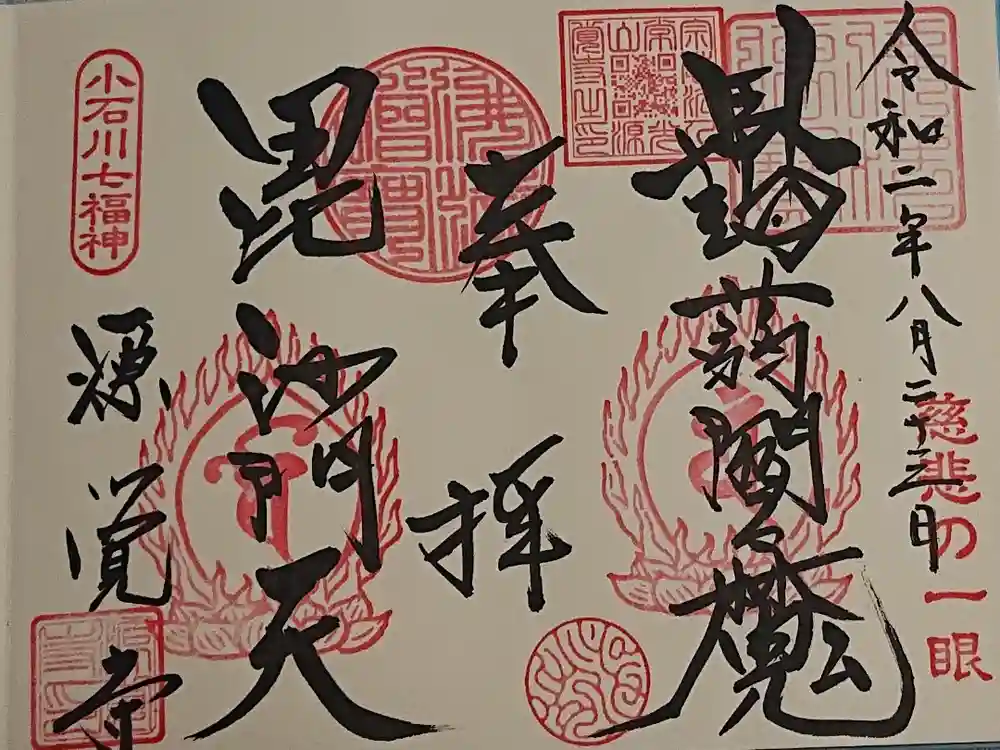 令和二年八月二十三日
慈悲の一眼
蒟蒻閻魔
奉拝
佛法僧寶
毘沙門天
小石川七福神
源覚寺